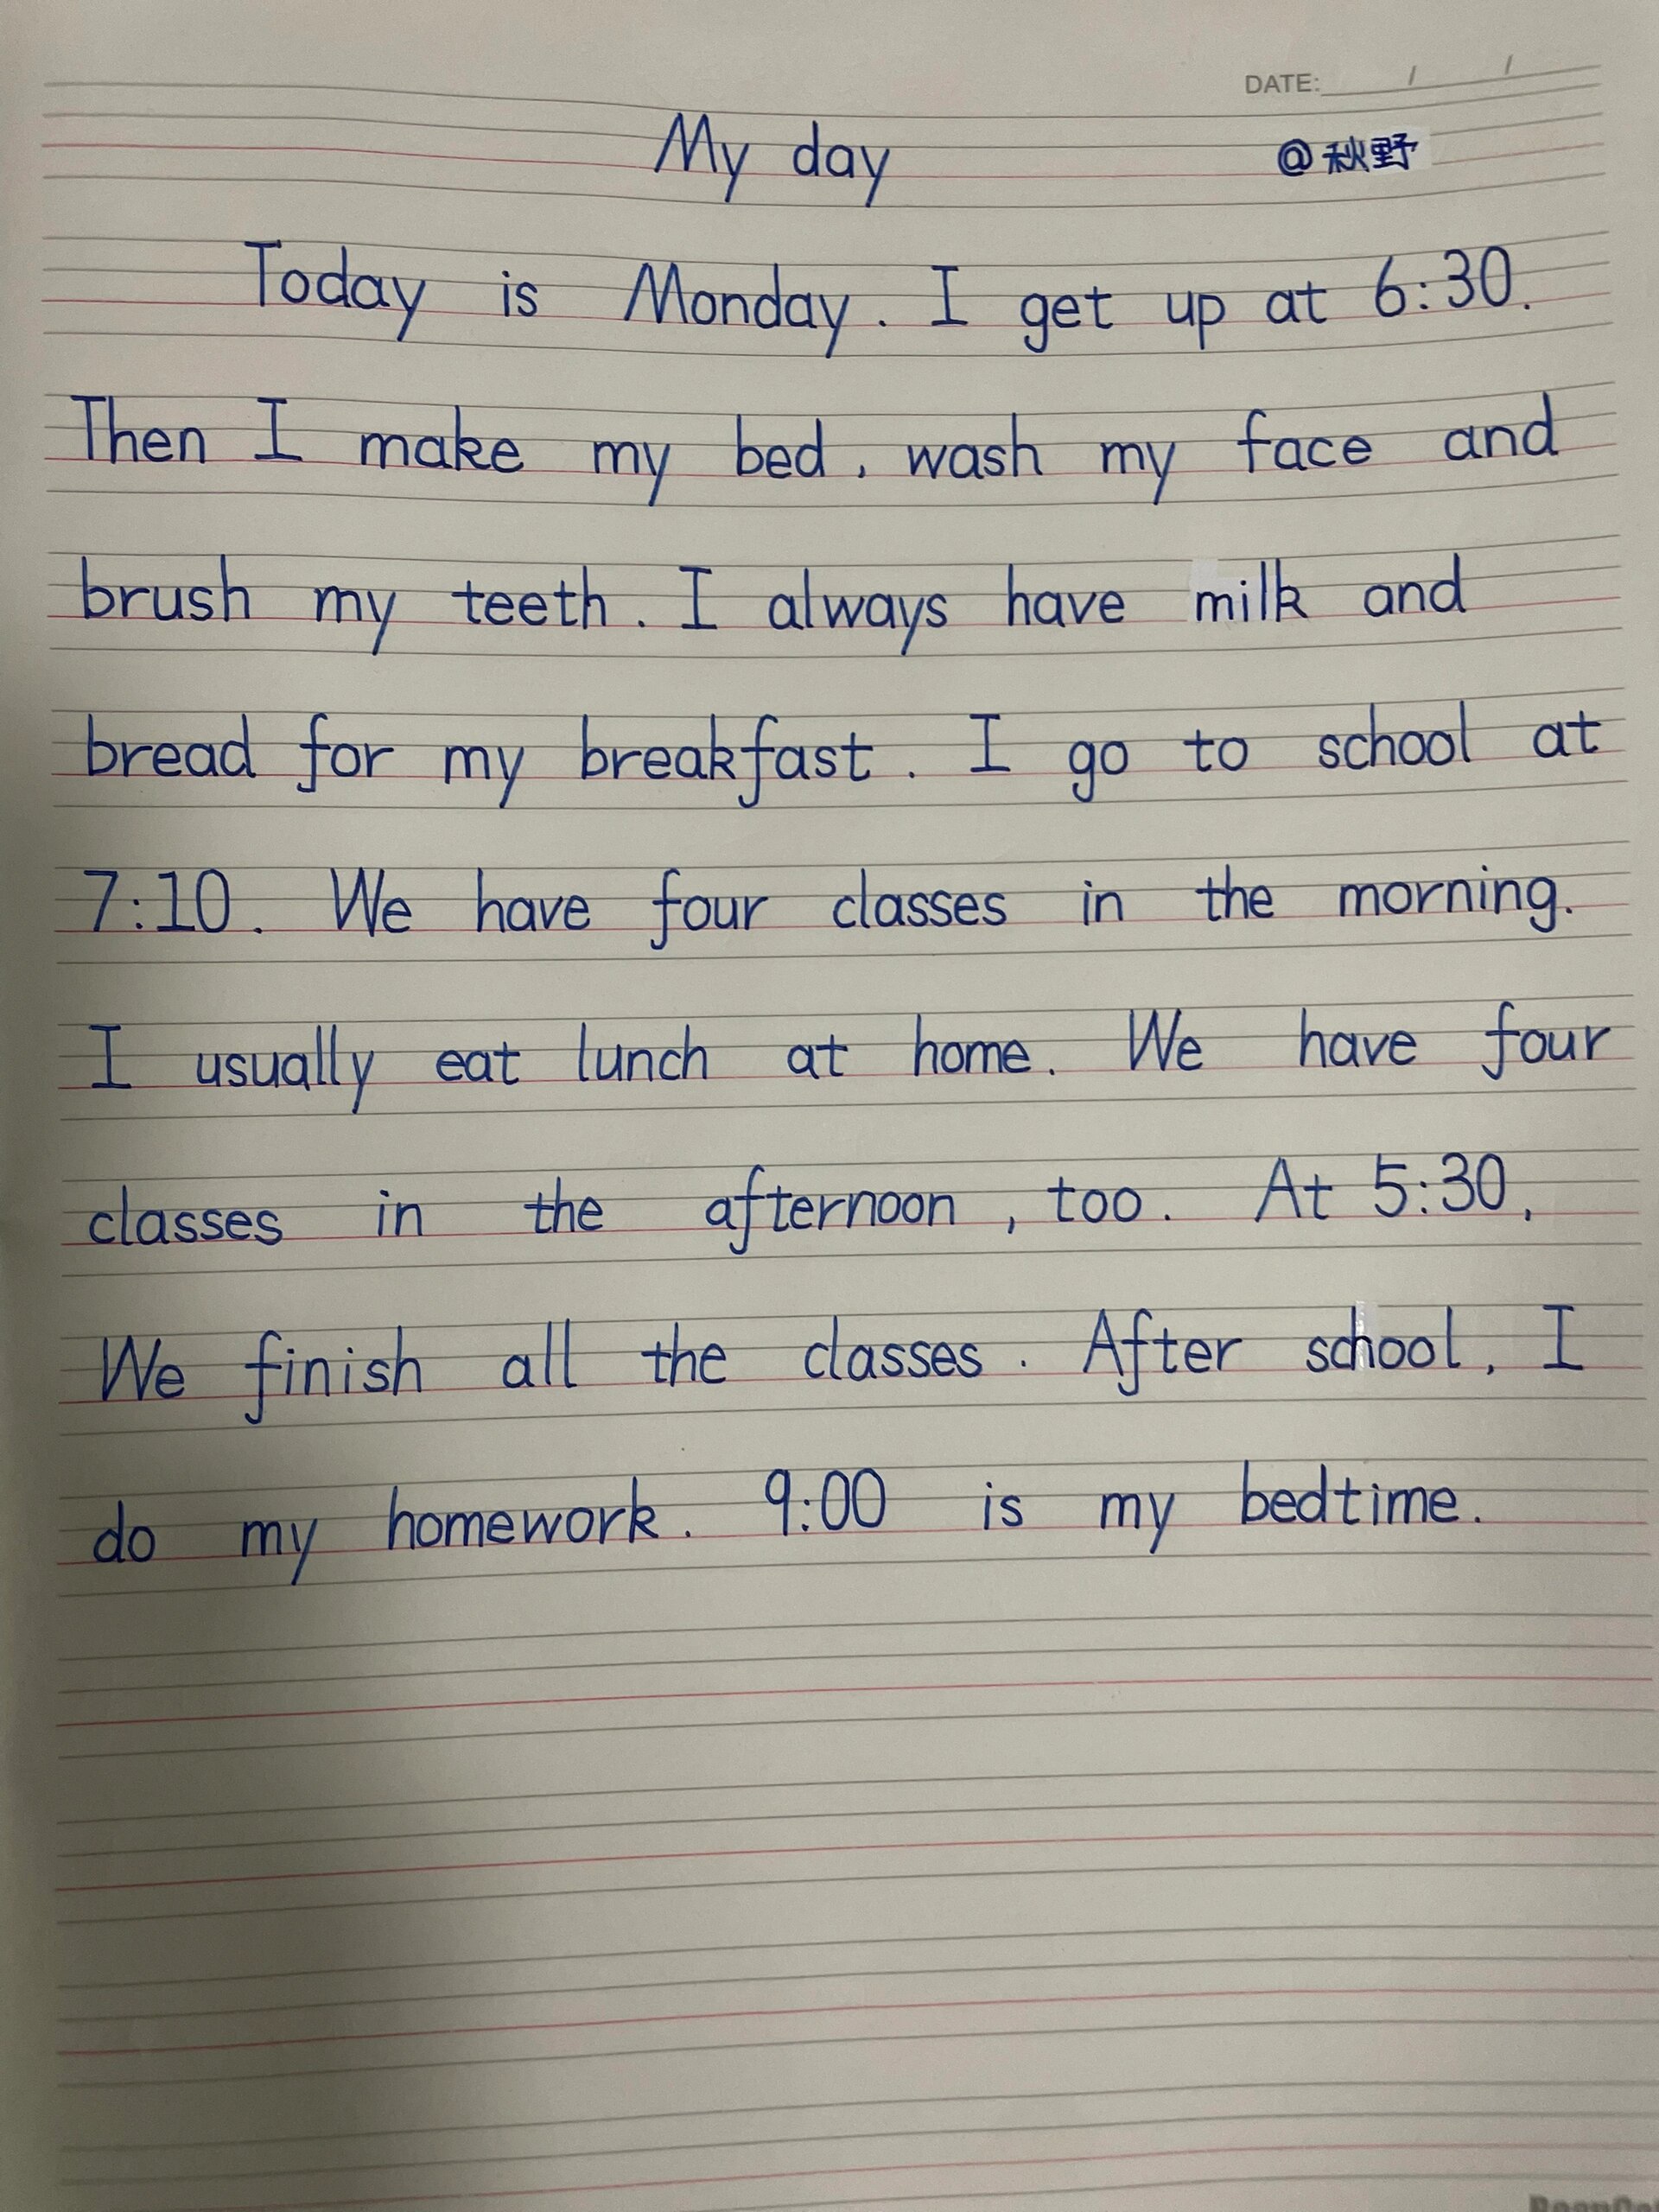 DATE: / /
My day @秋野
Today is Monday. I get up at 6:30.
Then I make my bed, wash my face and
brush my teeth. I always have milk and
bread for my breakfast. I go to school at
7:10. We have four classes in the morning.
I usually eat lunch at home. We have four
classes in the afternoon, too. At 5:30,
We finish all the classes. After school, I
do my homework. 9:00 is my bedtime.